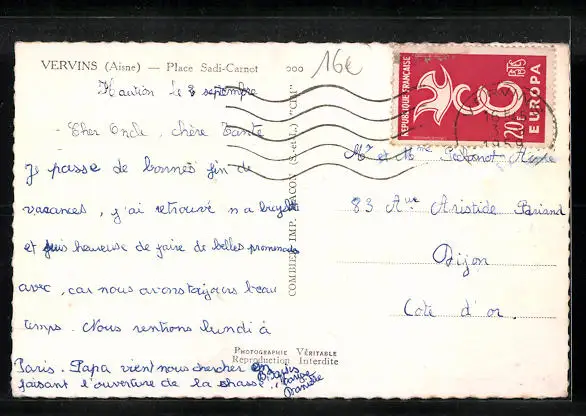 VERVINS (Aisne) — Place Sadi-Carnot
16€
Haution le 8 septembre
Cher Oncle, chère Tante
Je passe de bonnes fin de
vacances, j'ai retrouvé ma
et suis heureuse de faire de belles promenades
avec, car nous avons toujours beau
temps. Nous rentrons lundi à
Paris. Papa vient nous chercher en
faisant l'ouverture de la chasse.
Danièle
COMBIER IMP. MACON (S.-et-L.) "CIM"
PHOTOGRAPHIE VÉRITABLE
Reproduction Interdite
REPUBLIQUE FRANÇAISE
POSTES
20F
EUROPA
Mr et Mme
83 Aue Aristide Briand
Dijon
Cote d'or.